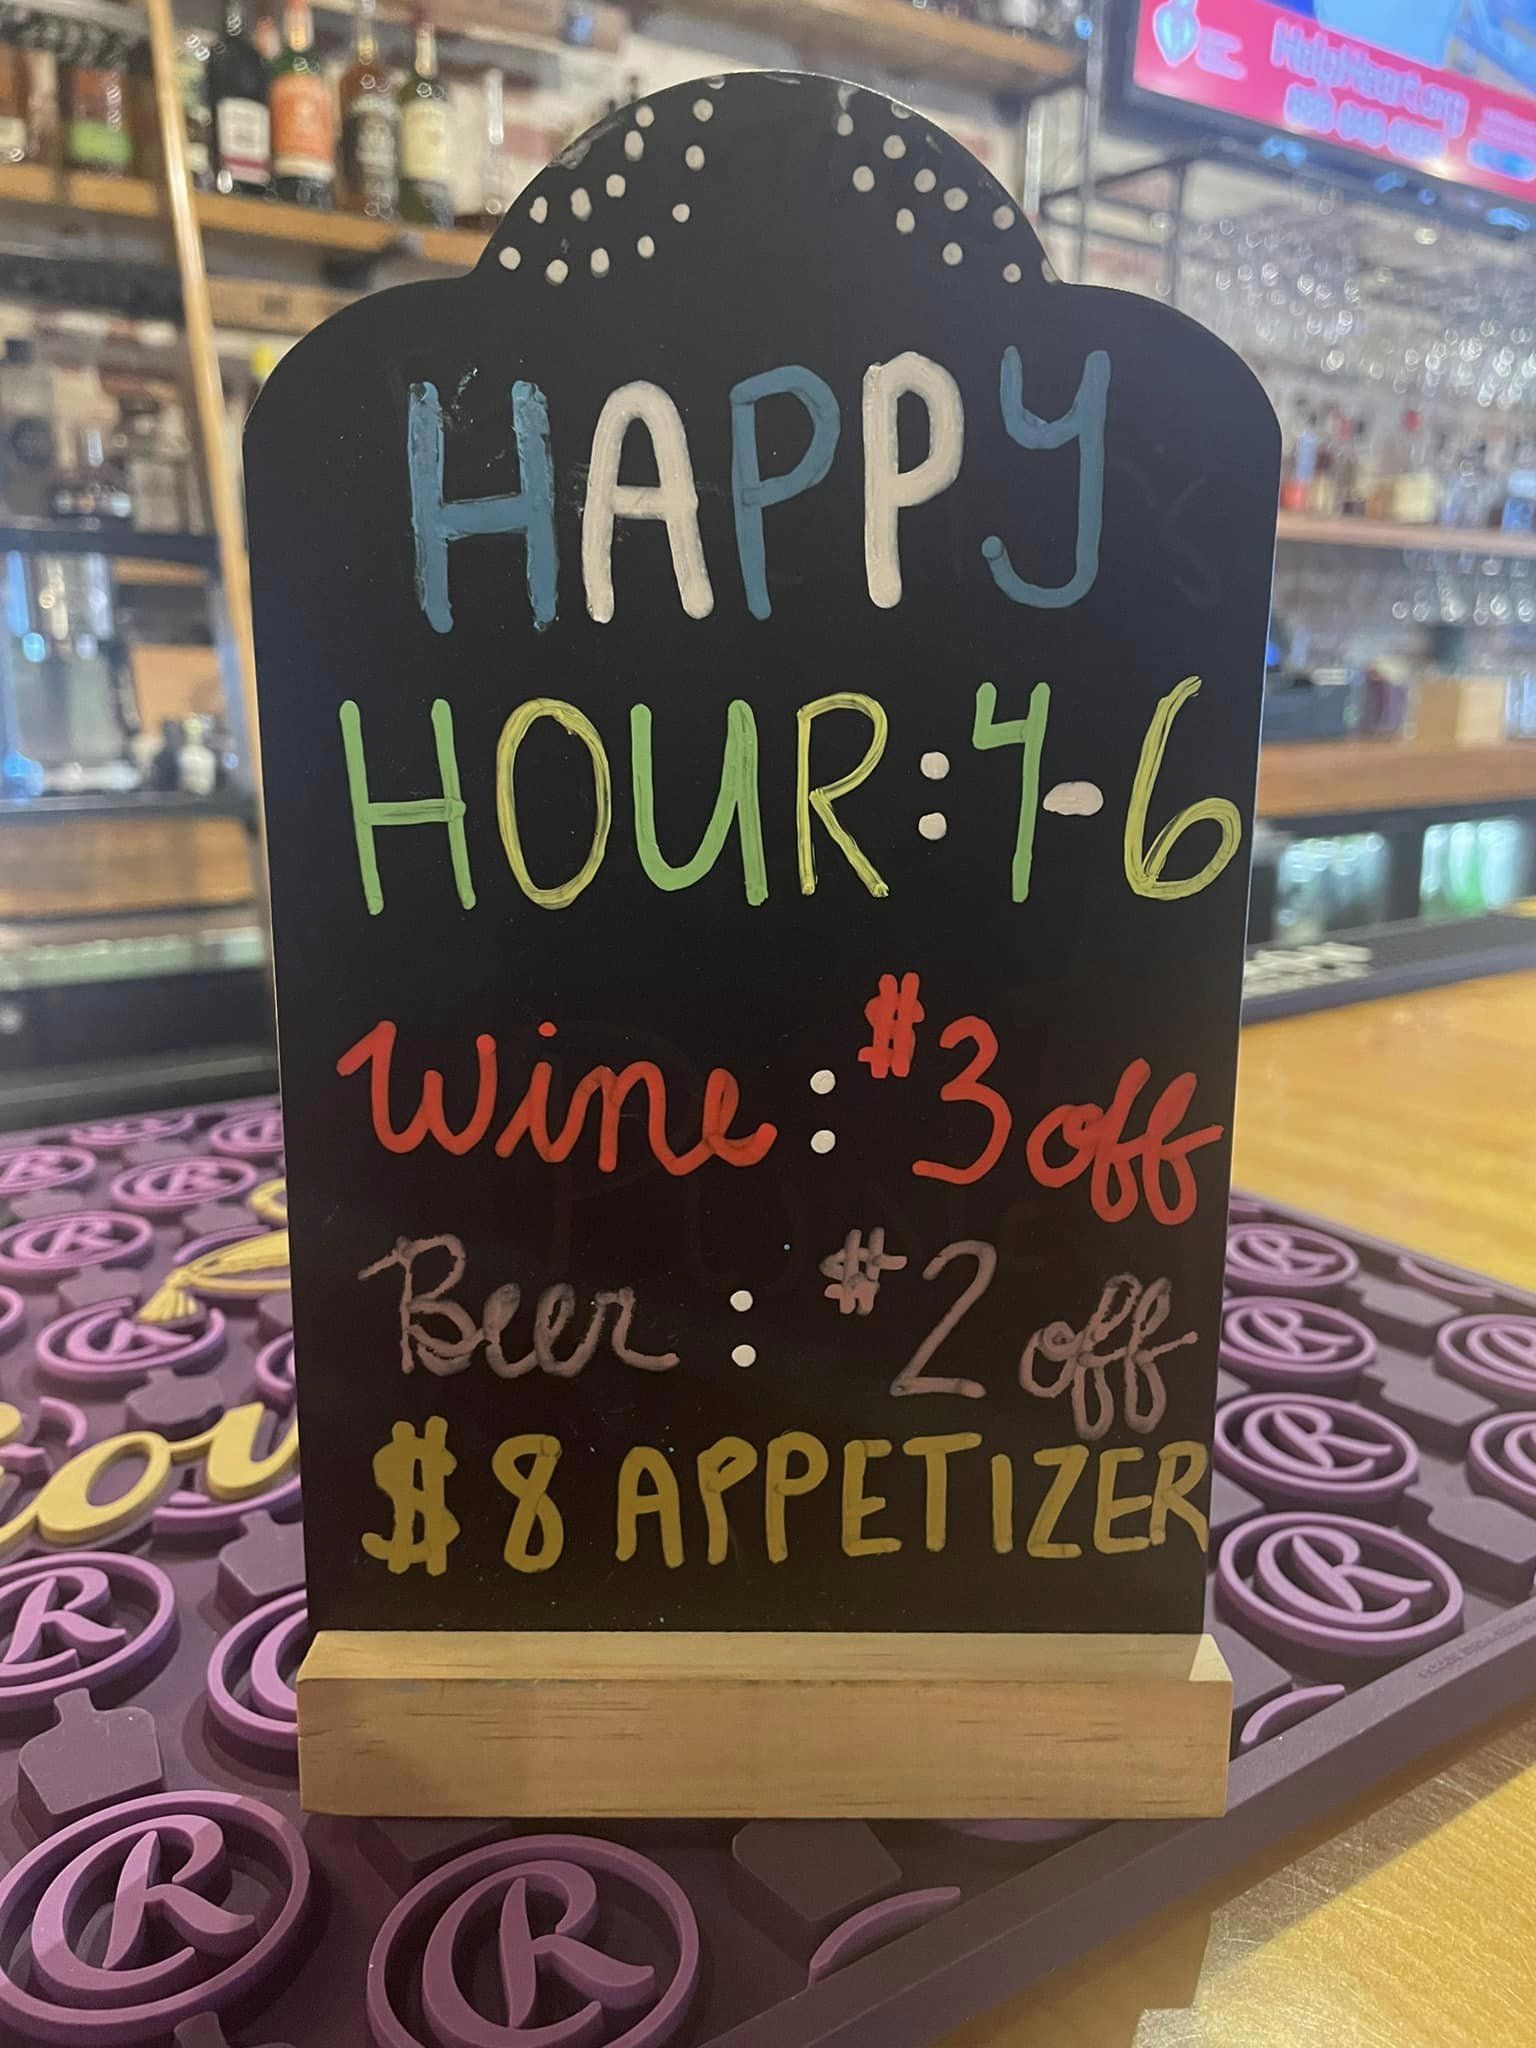 HAPPY
HOUR: 4-6
Wine: $3 off
Beer: $2 off
$8 APPETIZER